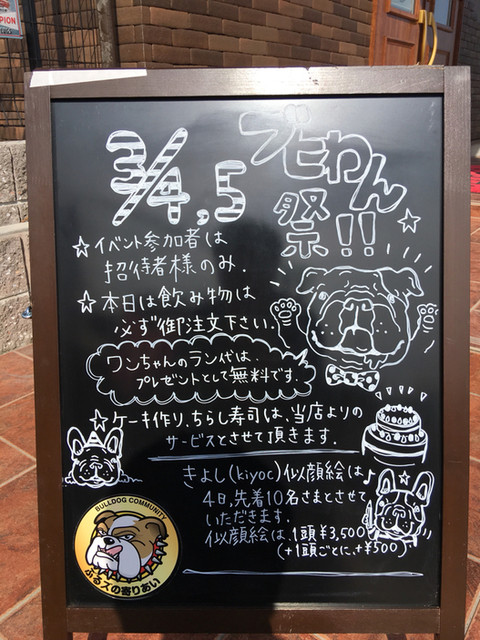 PION
3/4,5
ブヒわん
祭!!
☆イベント参加者は
招待者様のみ.
☆本日は飲み物は
必ず御注文下さい.
ワンちゃんのラン代は、
プレゼントとして無料です.
☆ケーキ作り、ちらし寿司は、当店よりの
サービスとさせて頂きます.
きよし(kiyoc)似顔絵は♪
4日,先着10名さまとさせて
いただきます.
似顔絵は、1頭¥3,500
(+1頭ごとに、+¥500)
BULLDOG COMMUNITY
ぶるズの寄りあい